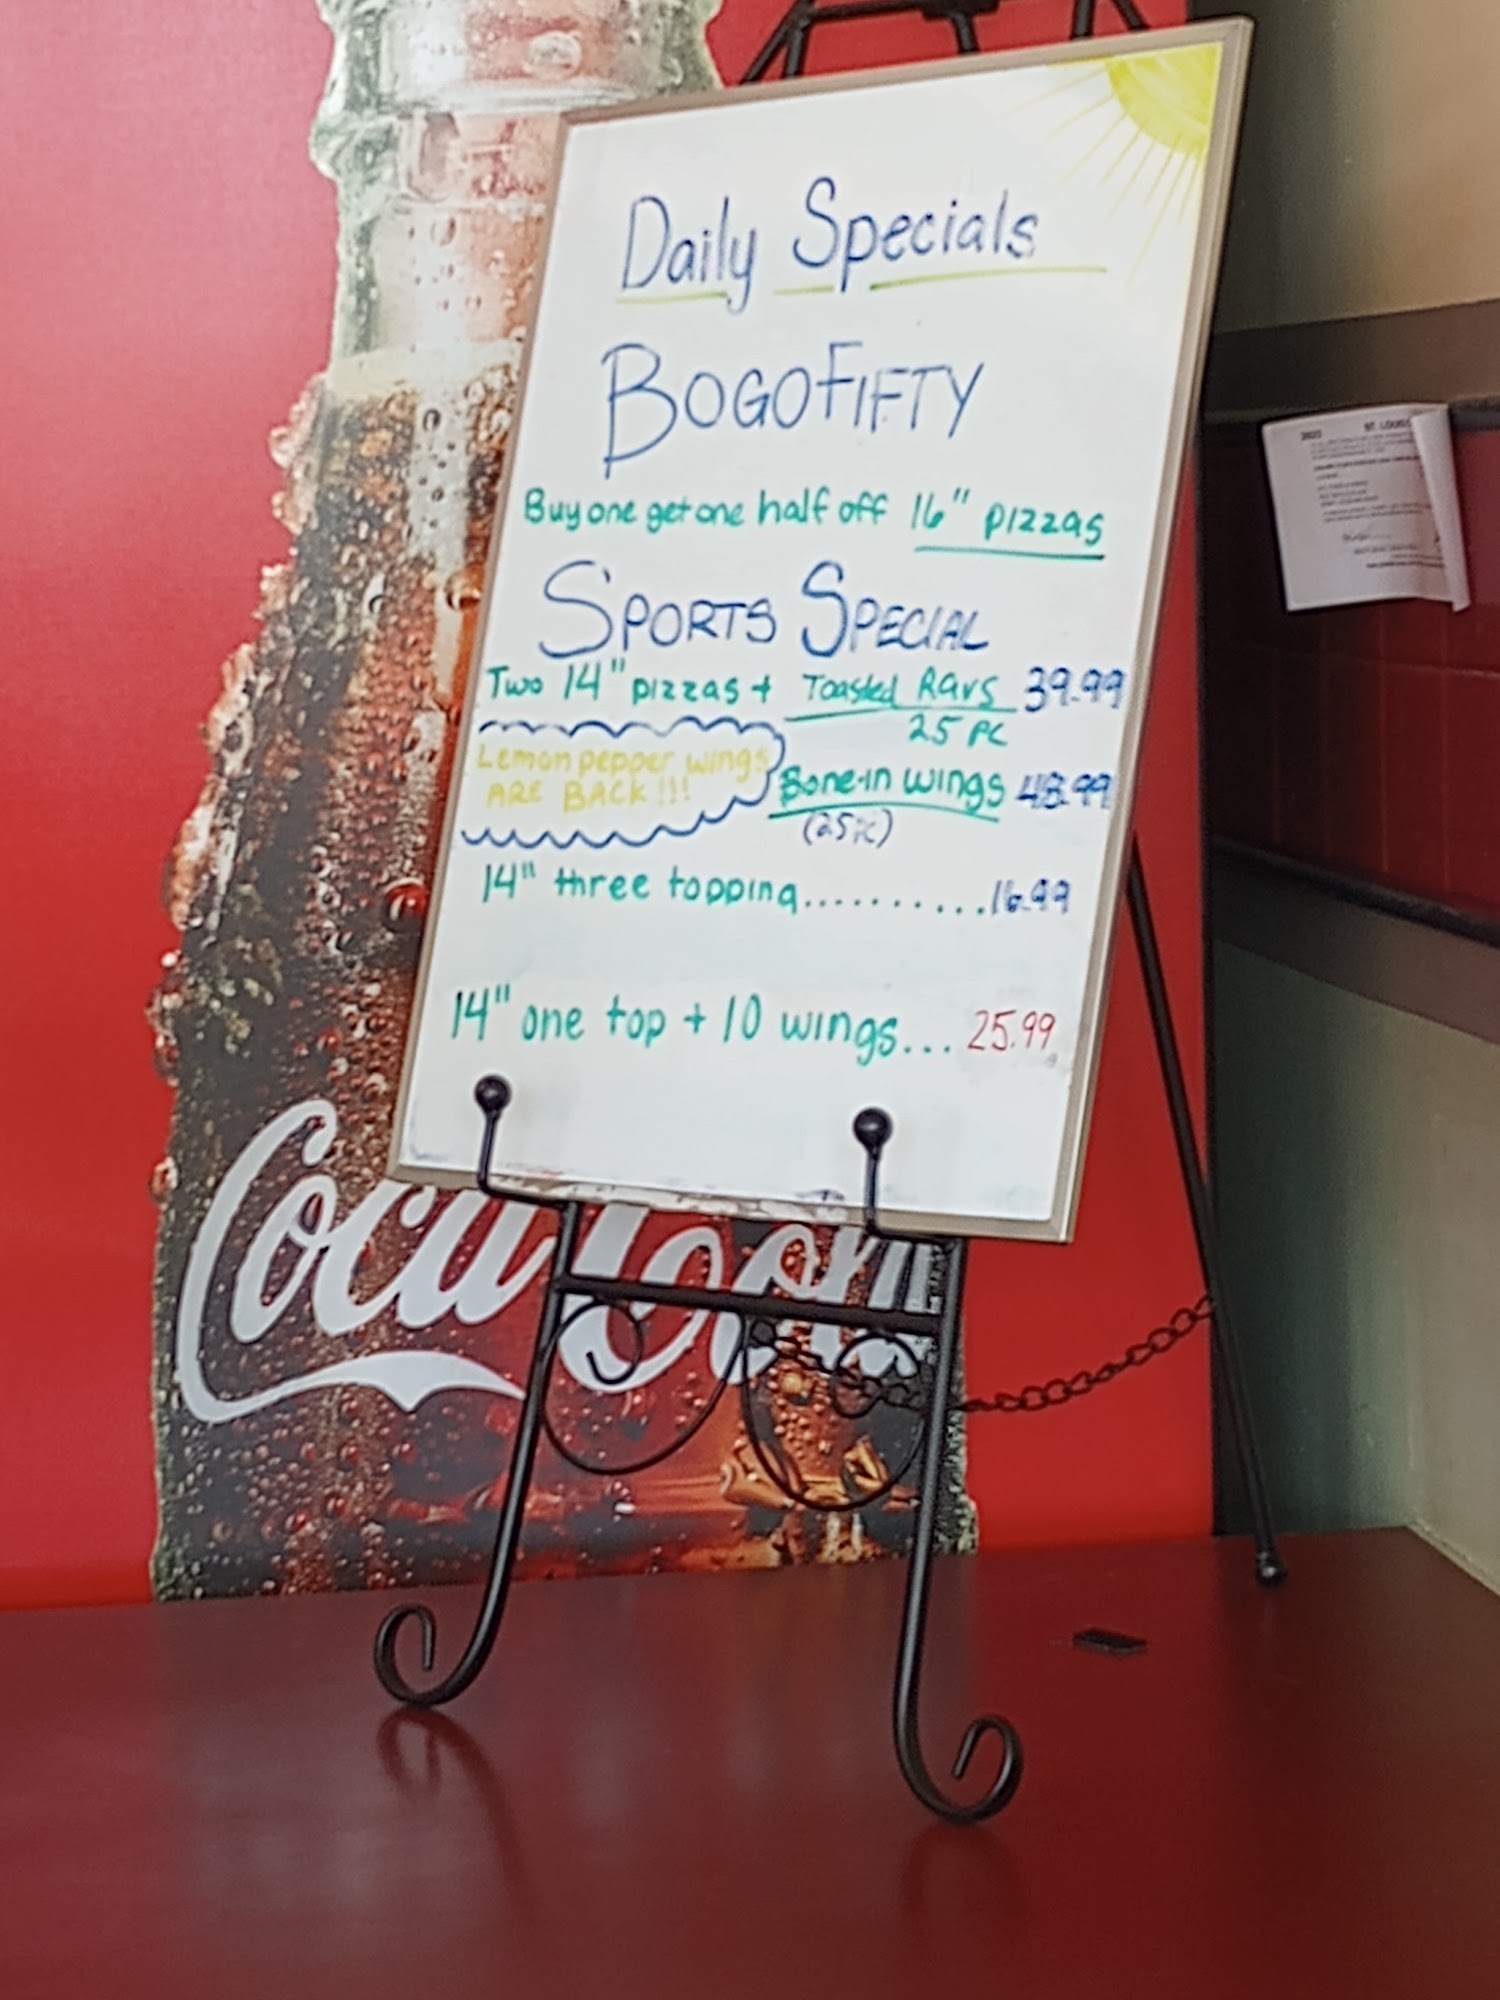 Daily Specials
BOGOFIFTY
Buy one get one half off 16" pizzas
SPORTS SPECIAL
Two 14" pizzas + Toasted Ravs 39.99
25 PC
Lemon pepper wings
ARE BACK!!!
Bone-in wings 48.99
(25 PC)
14" three topping..........16.99
14" one top + 10 wings... 25.99
Coca-Cola
2023 ST. LOUIS